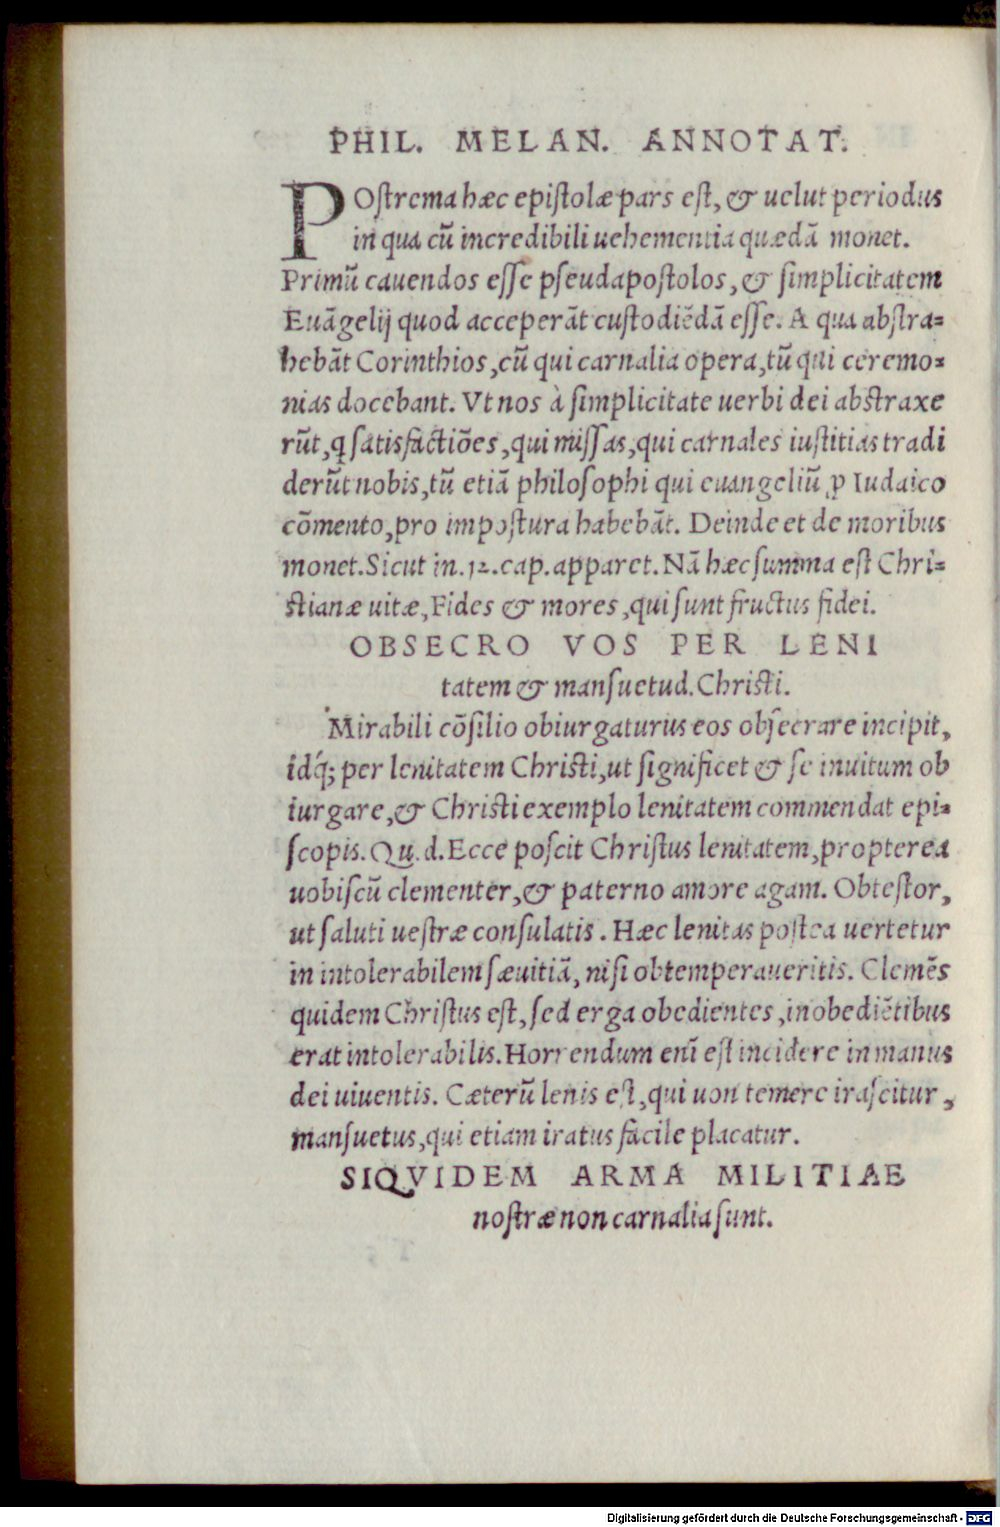 PHIL. MELAN. ANNOTAT.
POſtrema hæc epiſtolæ pars eſt, & uelut periodus
in qua cũ incredibili uehementia quædã monet.
Primũ cauendos eſſe pſeudapoſtolos, & ſimplicitatem
Euãgelij quod acceperãt cuſtodiẽdã eſſe. A qua abſtra-
hebãt Corinthios, cũ qui carnalia opera, tũ qui ceremo-
nias docebant. Vt nos à ſimplicitate uerbi dei abſtraxe
rũt, ꝗ ſatisfactiões, qui miſſas, qui carnales iuſtitias tradi
derũt nobis, tũ etiã philoſophi qui euangeliũ, ꝓ Iudaico
cõmento, pro impoſtura habebãt. Deinde et de moribus
monet. Sicut in .12. cap. apparet. Nã hæc ſumma eſt Chri-
ſtianæ uitæ, Fides & mores, qui ſunt fructus fidei.
OBSECRO VOS PER LENI
tatem & manſuetud. Chriſti.
Mirabili cõſilio obiurgaturus eos obſecrare incipit,
idq́; per lenitatem Chriſti, ut ſignificet & ſe inuitum ob
iurgare, & Chriſti exemplo lenitatem commendat epi-
ſcopis. Qu. d. Ecce poſcit Chriſtus lenitatem, propterea
uobiſcũ clementer, & paterno amore agam. Obteſtor,
ut ſaluti ueſtræ conſulatis. Hæc lenitas poſtea uertetur
in intolerabilem ſæuitiã, niſi obtemperaueritis. Clemẽs
quidem Chriſtus eſt, ſed erga obedientes, inobediẽtibus
erat intolerabilis. Horrendum enĩ eſt incidere in manus
dei uiuentis. Cæterũ lenis eſt, qui uon temere iraſcitur,
manſuetus, qui etiam iratus facile placatur.
SIQVIDEM ARMA MILITIAE
noſtræ non carnalia ſunt.
Digitalisierung gefördert durch die Deutsche Forschungsgemeinschaft - DFG